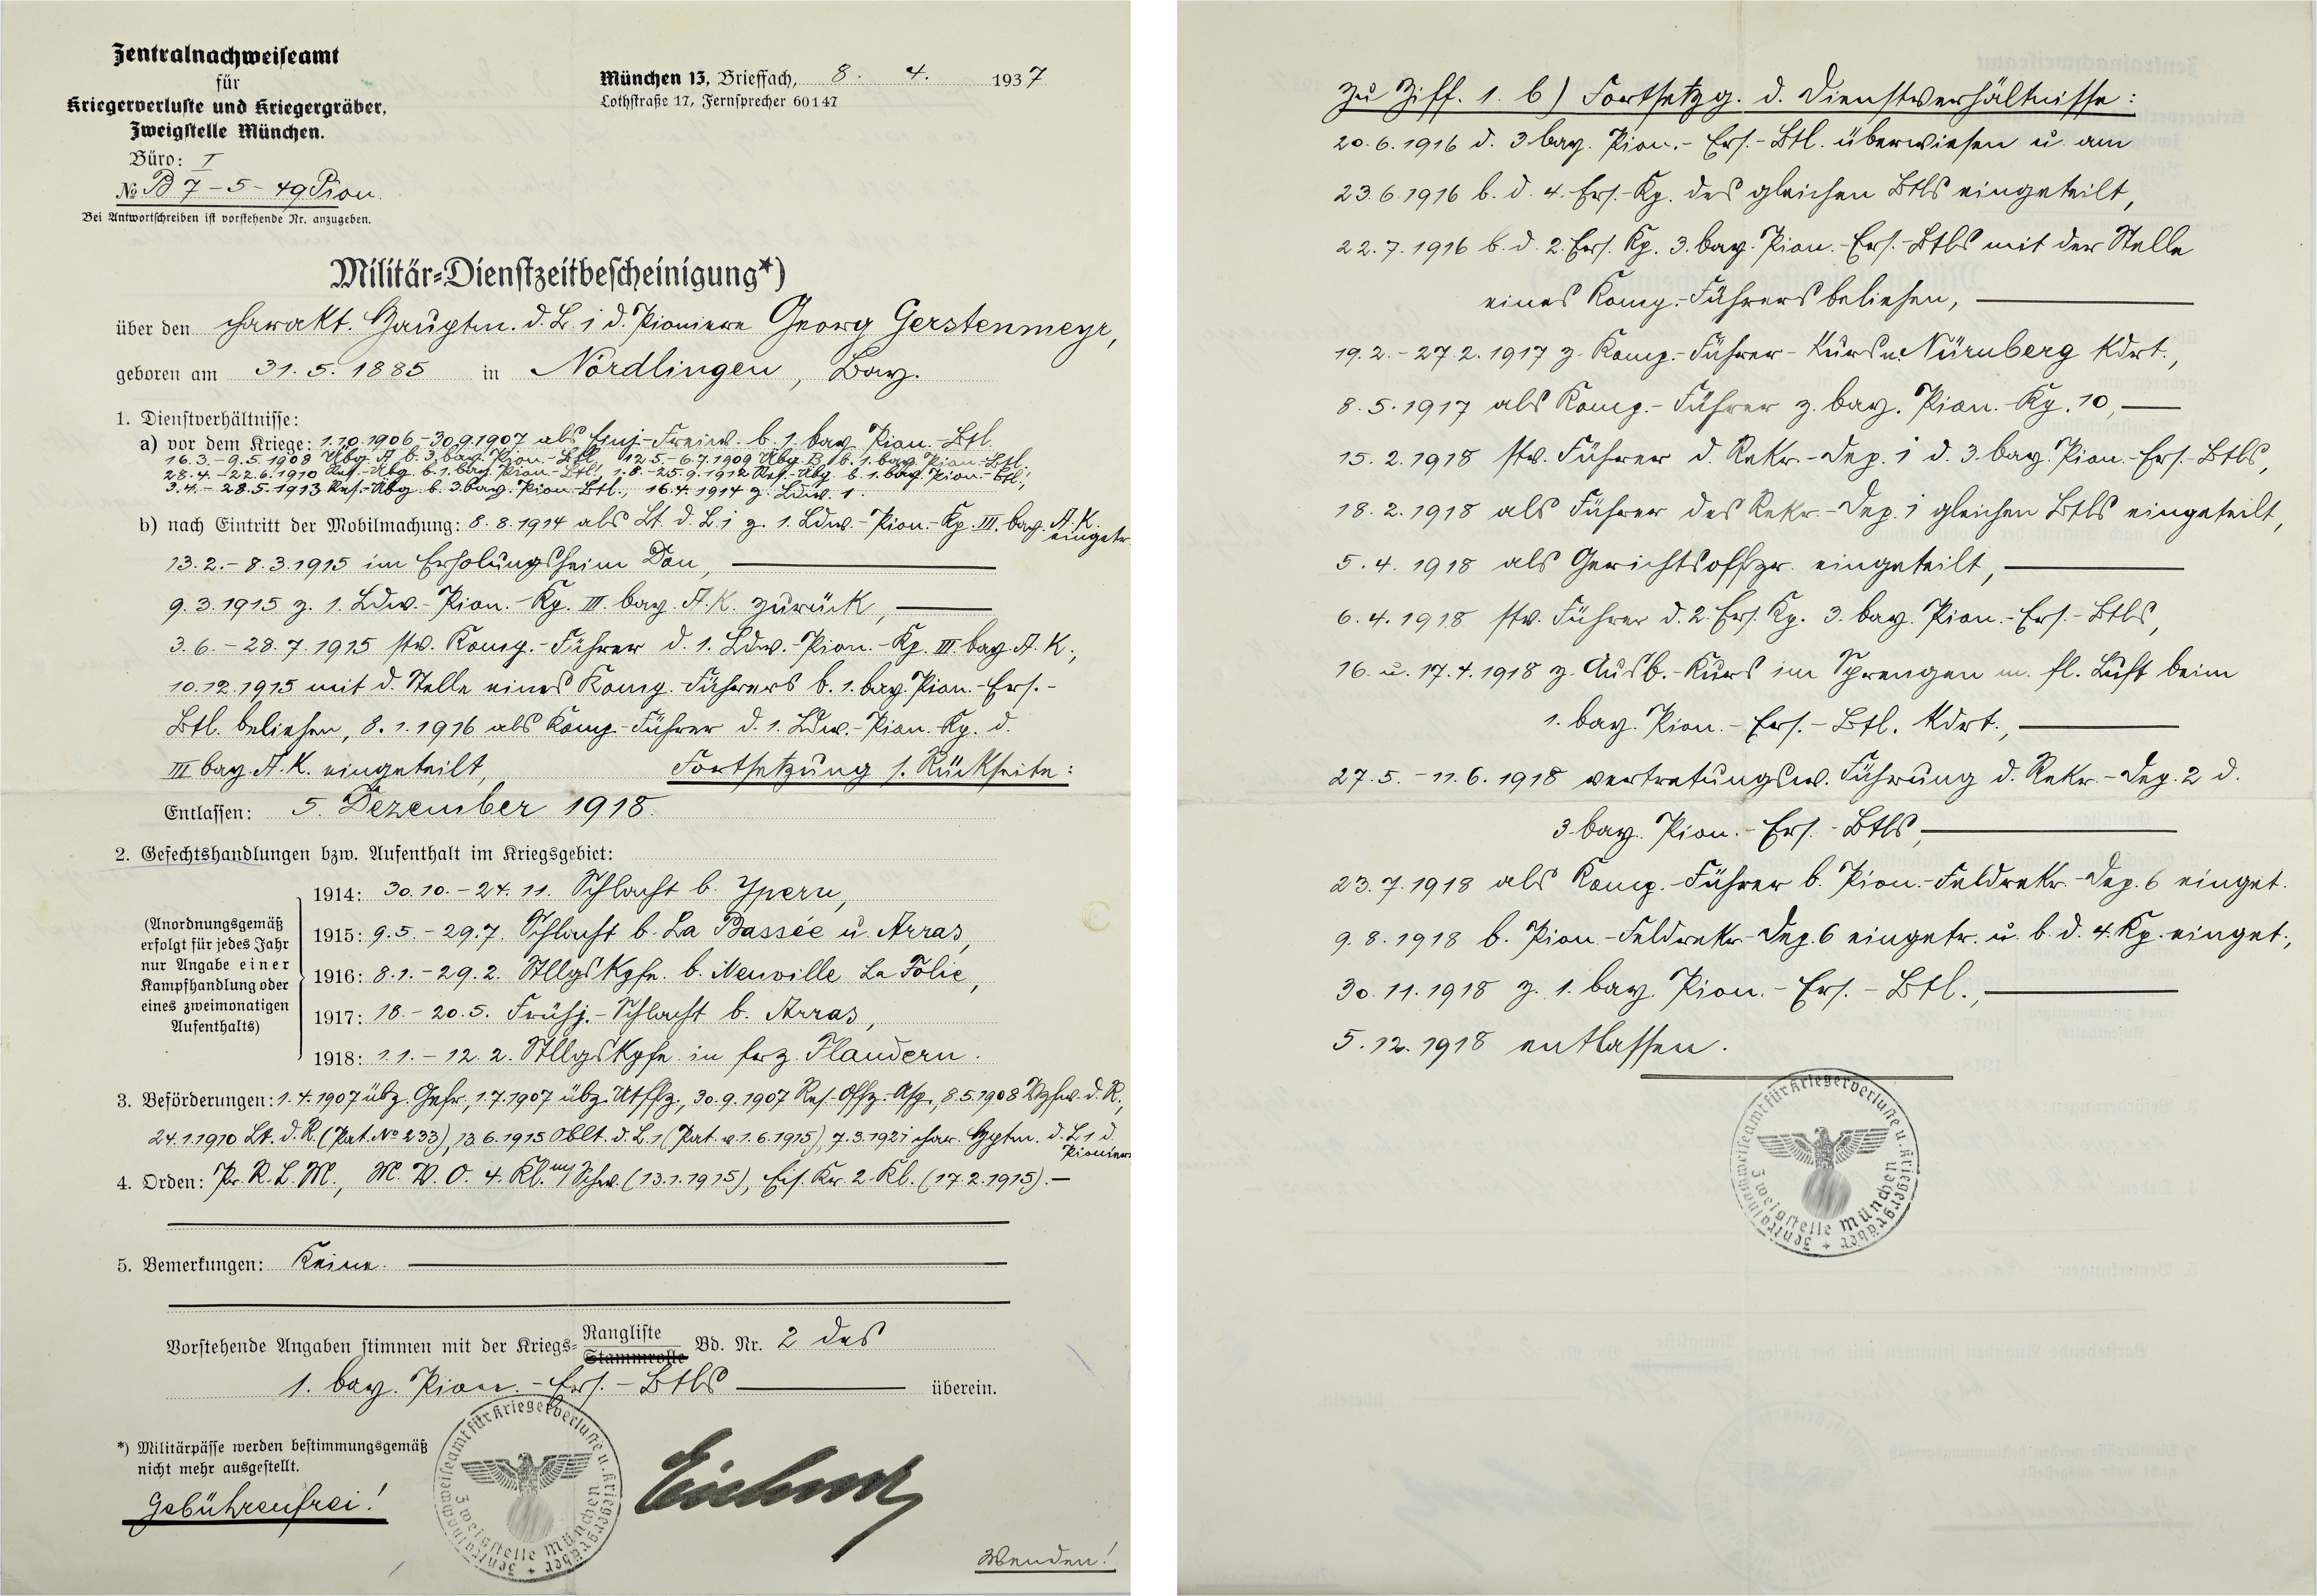 Zentralnachweiseamt
für
Kriegerverluste und Kriegergräber,
Zweigstelle München.
Büro: I
No B 7-5-49 Pion.
Bei Antwortschreiben ist vorstehende Nr. anzugeben.
München 13, Brieffach, 8. 4. 1937
Lothstraße 17, Fernsprecher 60147
Militär-Dienstzeitbescheinigung*)
über den charakt. Hauptm. d. L. I d. Pioniere Georg Gerstenmeyr,
geboren am 31. 5. 1885 in Nördlingen, Bay.
1. Dienstverhältnisse:
a) vor dem Kriege: 1.10.1906-30.9.1907 als Einj.-Freiw. b. 1. bay. Pion.-Btl.
16.3.-9.5.1908 Übg. A b. 3. bay. Pion.-Btl., 12.5.-6.7.1909 Übg. B b. 1. bay. Pion.-Btl.,
28.4.-22.6.1910 Res.-Übg. b. 1. bay. Pion.-Btl., 1.8.-25.9.1912 Res.-Übg. b. 1. bay. Pion.-Btl.,
3.4.-28.5.1913 Res.-Übg. b. 3. bay. Pion.-Btl., 16.4.1914 z. Ldw. 1.
b) nach Eintritt der Mobilmachung: 8.8.1914 als Lt. d. L. I z. 1. Ldw.-Pion.-Kp. III. bay. A.K. eingetr.
13.2.-8.3.1915 im Erholungsheim Don,
9.3.1915 z. 1. Ldw.-Pion.-Kp. III. bay. A.K. zurück,
3.6.-28.7.1915 stv. Komp.-Führer d. 1. Ldw.-Pion.-Kp. III. bay. A.K.,
10.12.1915 mit d. Stelle eines Komp.-Führers b. 1. bay. Pion.-Ers.-
Btl. beliehen, 8.1.1916 als Komp.-Führer d. 1. Ldw.-Pion.-Kp. d.
III bay. A.K. eingeteilt, Fortsetzung s. Rückseite:
Entlassen: 5. Dezember 1918.
2. Gefechtshandlungen bzw. Aufenthalt im Kriegsgebiet:
(Anordnungsgemäß
erfolgt für jedes Jahr
nur Angabe einer
Kampfhandlung oder
eines zweimonatigen
Aufenthalts)
1914: 30.10.-24.11. Schlacht b. Ypern,
1915: 9.5.-29.7. Schlacht b. La Bassée u. Arras,
1916: 8.1.-29.2. Stllgskpfe. b. Neuville La Folie,
1917: 18.-20.5. Frühj.-Schlacht b. Arras,
1918: 1.1.-12.2. Stllgskpfe in frz. Flandern.
3. Beförderungen: 1.4.1907 übz. Gefr., 1.7.1907 übz. Utffz., 30.9.1907 Res.-Offz.-Asp., 8.5.1908 Vzfw. d. R.,
24.1.1910 Lt. d. R. (Pat. No 233), 13.6.1915 Oblt. d. L. 1 (Pat. v. 1.6.1915), 7.3.1921 char. Hptm. d. L 1 d. Pioniere
4. Orden: Pr. R. L. M., M. V. O. 4. Kl. m/Schw. (13.1.1915), Eis. Kr. 2. Kl. (17.2.1915).-
5. Bemerkungen: Keine.
Vorstehende Angaben stimmen mit der Kriegs- Rangliste Stammrolle Bd. Nr. 2 des
1. bay. Pion.-Ers.-Btls überein.
*) Militärpässe werden bestimmungsgemäß
nicht mehr ausgestellt.
Gebührenfrei!
Zentralnachweiseamt für Kriegerverluste u. Kriegergräber
Zweigstelle München
Wenden!
Zu Ziff. 1. b) Fortsetzg. d. Dienstverhältnisse:
20.6.1916 d. 3. bay. Pion.-Ers.-Btl. überwiesen u. am
23.6.1916 b. d. 4. Ers.-Kp. des gleichen Btls eingeteilt,
22.7.1916 b. d. 2. Ers. Kp. 3. bay. Pion.-Ers.-Btls mit der Stelle
eines Komp.-Führers beliehen,
19.2.-27.2.1917 z. Komp.-Führer-Kurs n. Nürnberg kdrt.,
8.5.1917 als Komp.-Führer z. bay. Pion.-Kp. 10,
15.2.1918 stv. Führer d. Rekr.-Dep. I d. 3. bay. Pion.-Ers.-Btls,
18.2.1918 als Führer des Rekr.-Dep. I gleichen Btls eingeteilt,
5.4.1918 als Gerichtsoffzr. eingeteilt,
6.4.1918 stv. Führer d. 2. Ers. Kp. 3. bay. Pion.-Ers.-Btls,
16. u. 17.4.1918 z. Ausb.-Kurs im Sprengen m. fl. Luft beim
1. bay. Pion.-Ers.-Btl. kdrt.,
27.5.-11.6.1918 vertretungsw. Führung d. Rekr.-Dep. 2 d.
3. bay. Pion.-Ers.-Btls,
23.7.1918 als Komp.-Führer b. Pion.-Feldrekr.-Dep. 6 einget.
9.8.1918 b. Pion.-Feldrekr.-Dep. 6 eingetr. u. b. d. 4. Kp. einget.,
30.11.1918 z. 1. bay. Pion.-Ers.-Btl.,
5.12.1918 entlassen.
Zentralnachweiseamt für Kriegerverluste u. Kriegergräber
Zweigstelle München